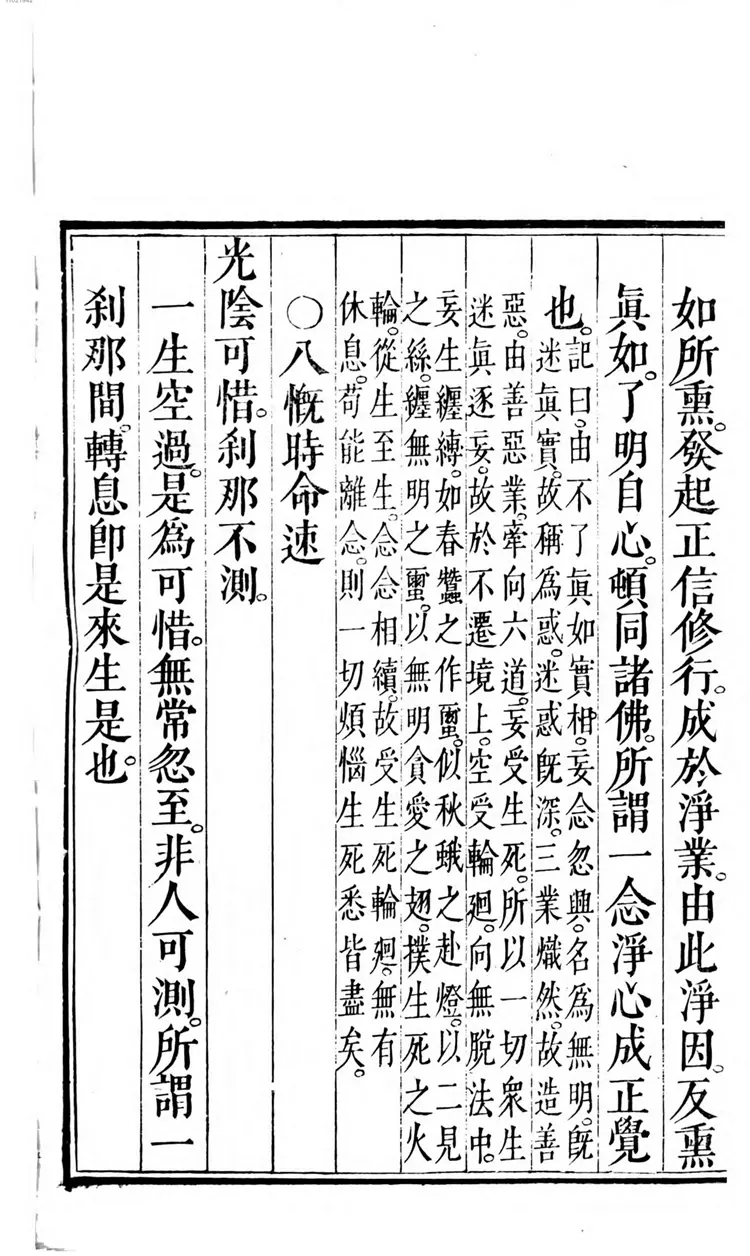 如所熏。發起正信修行。成於淨業。由此淨因。反熏
眞如。了明自心。頓同諸佛。所謂一念淨心成正覺
也。記曰。由不了眞如實相。妄念忽興。名爲無明。既
迷眞實。故稱爲惑。迷惑既深。三業熾然。故造善
惡。由善惡業。牽向六道。妄受生死。所以一切衆生
迷眞逐妄。故於不遷境上。空受輪廻。向無脫法中。
妄生纏縛。如春蠶之作𠁅。似秋蛾之赴燈。以二見
之絲。纏無明之𠁅。以無明貪愛之翅。撲生死之火
輪。從生至生。念念相續。故受生死輪廻。無有
休息。苟能離念。則一切煩惱生死悉皆盡矣。
○八慨時命速
光陰可惜。刹那不測。
一生空過。是爲可惜。無常忽至。非人可測。所謂一
刹那間。轉息卽是來生是也。